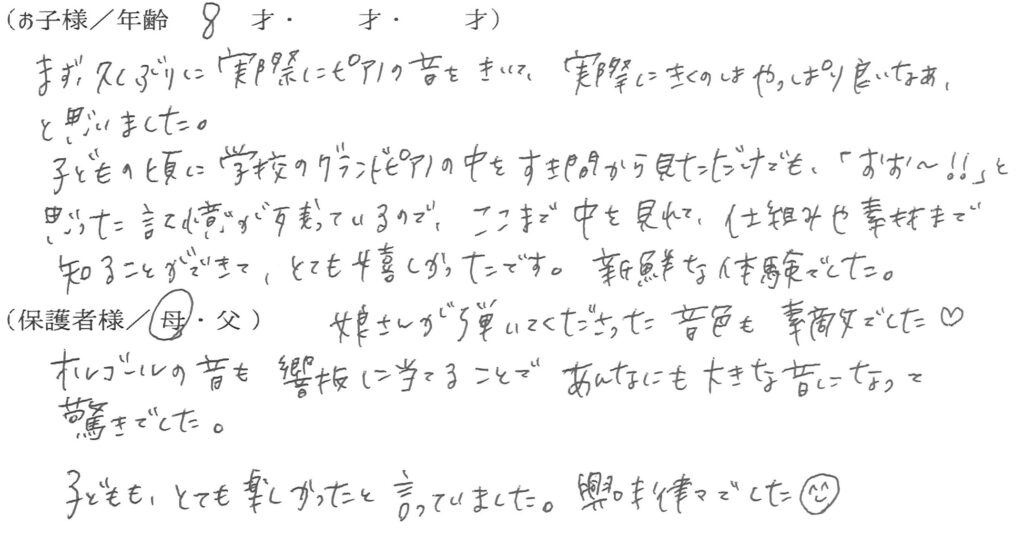 (お子様／年齢　8　才・　　才・　　才)
まず、久しぶりに実際にピアノの音をきいて、実際にきくのはやっぱり良いなぁ、
と思いました。
子どもの頃に学校のグランドピアノの中をすき間から見ただけでも、「おお〜!!」と
思った記憶が残っているので、ここまで中を見れて、仕組みや素材まで
知ることができて、とても嬉しかったです。新鮮な体験でした。
(保護者様／母・父)　娘さんが弾いてくださった音色も素敵でした♡
オルゴールの音も響板に当てることであんなにも大きな音になって
驚きでした。
子どもも、とても楽しかったと言っていました。興味津々でした☺